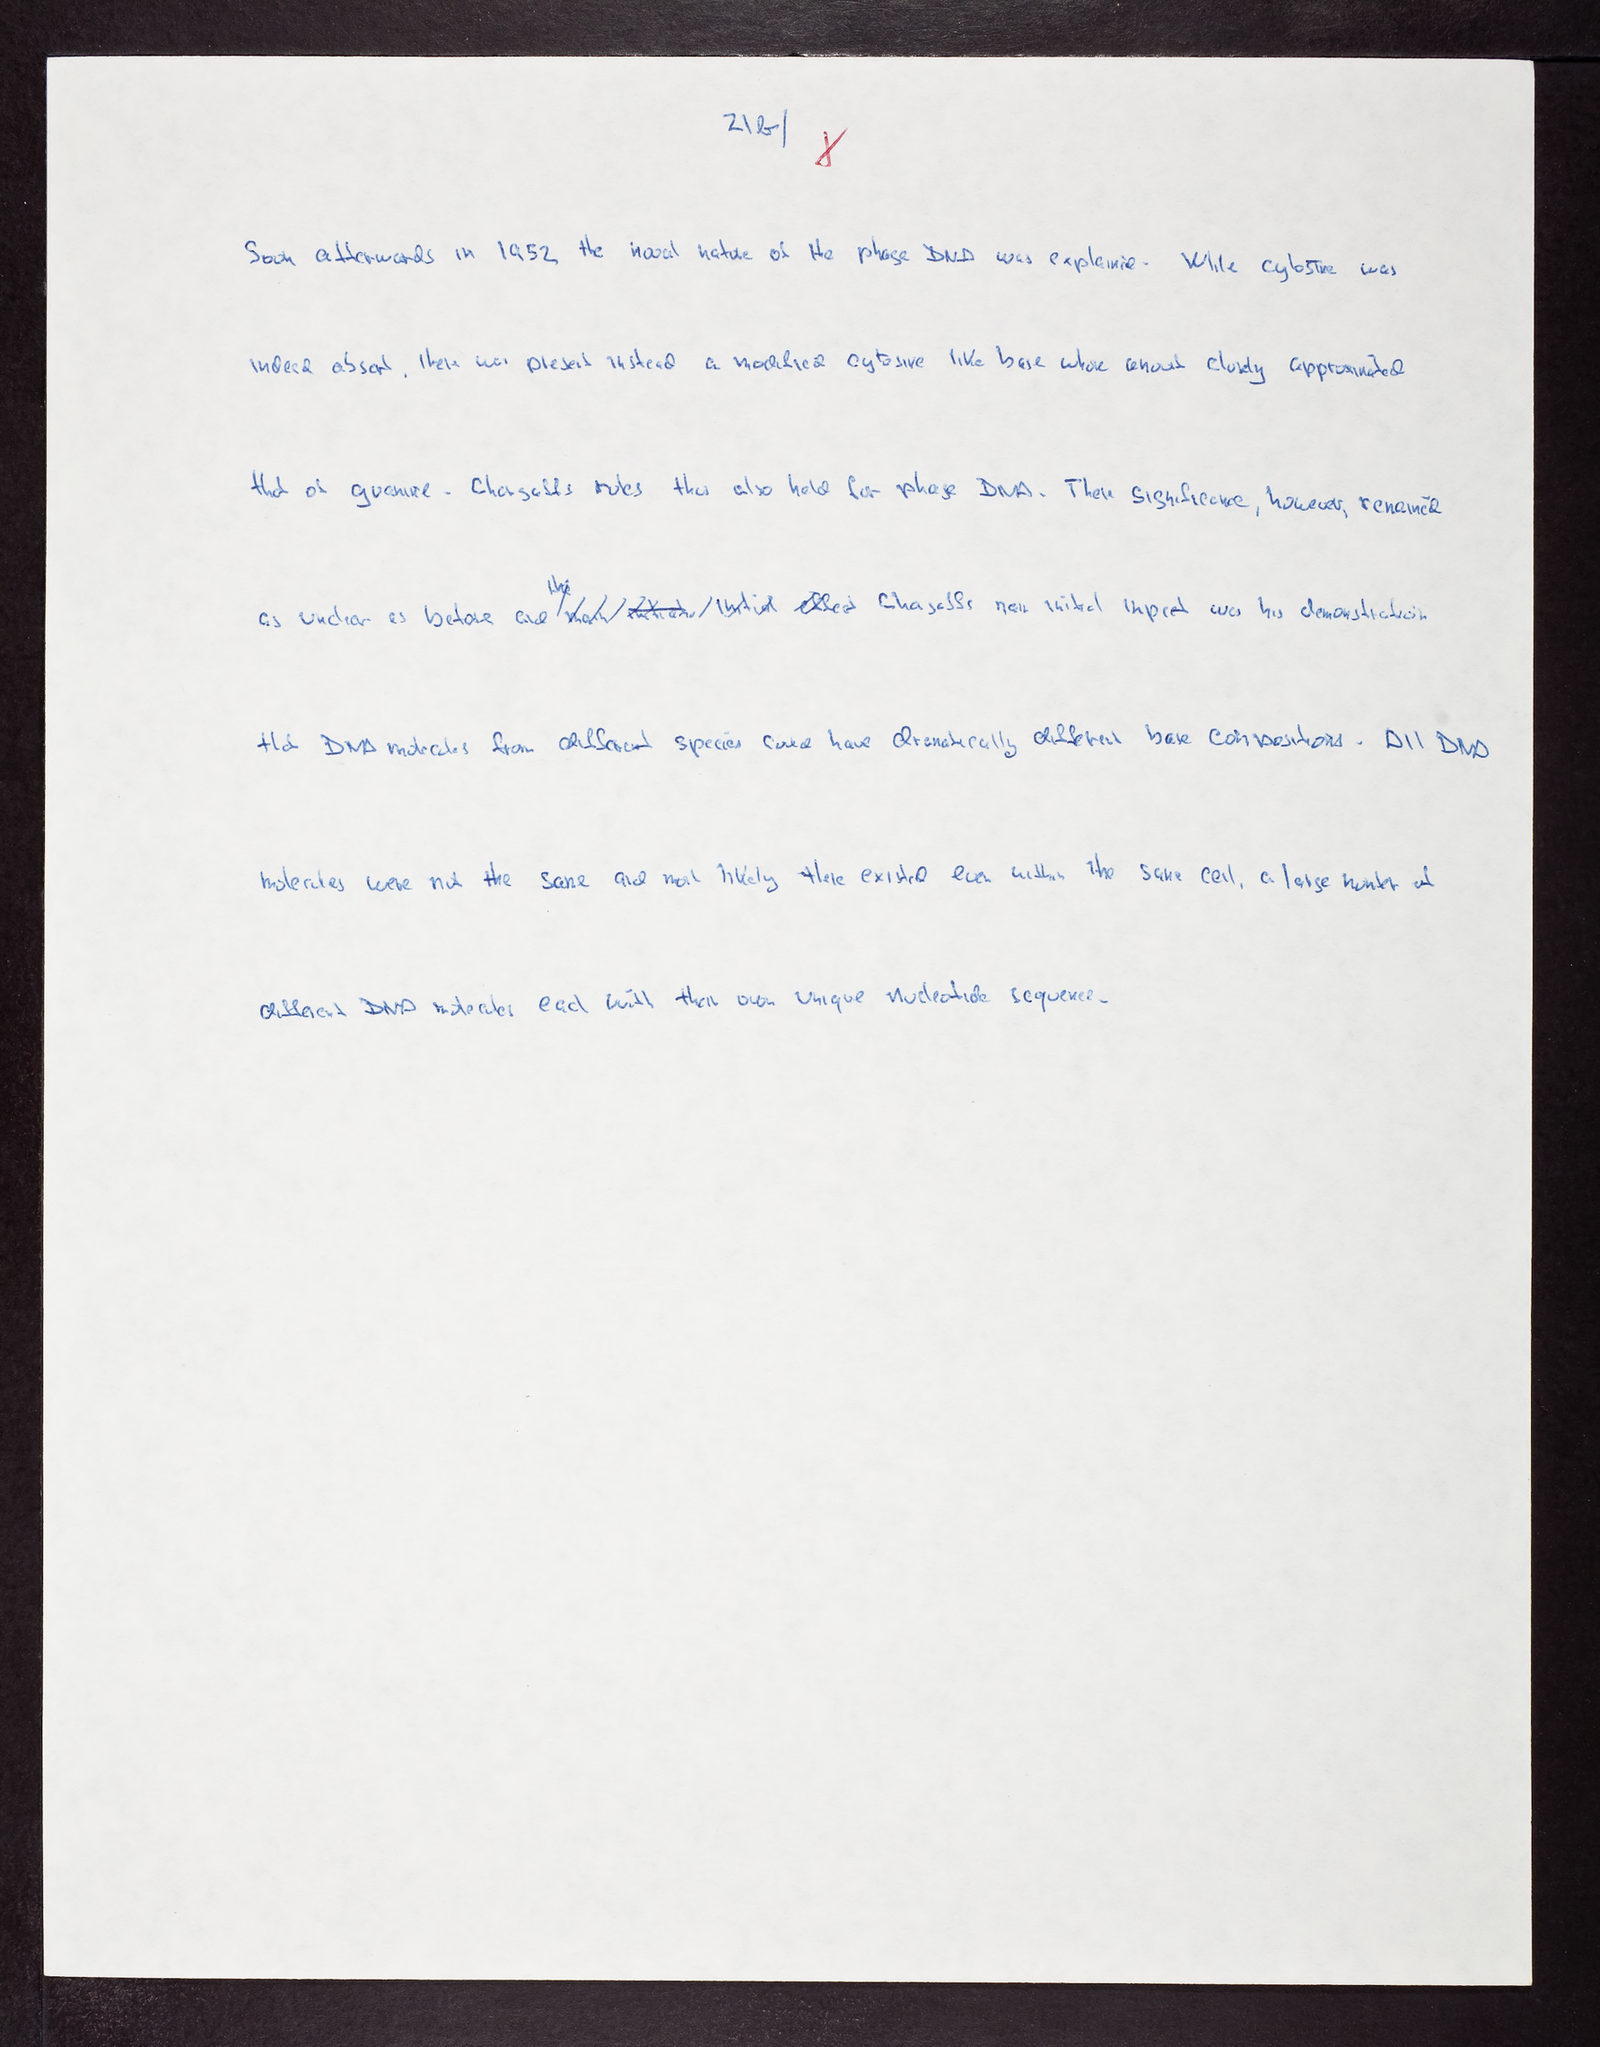 21b/
8
Soon afterwards in 1952, the novel nature of the phage DNA was explained. While cytosine was
indeed absent, there was present instead a modified cytosine like base whose amount closely approximated
that of guanine. Chargaffs rules thus also held for phage DNA. Their significance, however, remained
as unclear as before and the main initial effect Chargaffs main initial impact was his demonstration
that DNA molecules from different species could have dramatically different base compositions. All DNA
molecules were not the same and most likely there existed even within the same cell, a large number of
different DNA molecules each with their own unique nucleotide sequence.